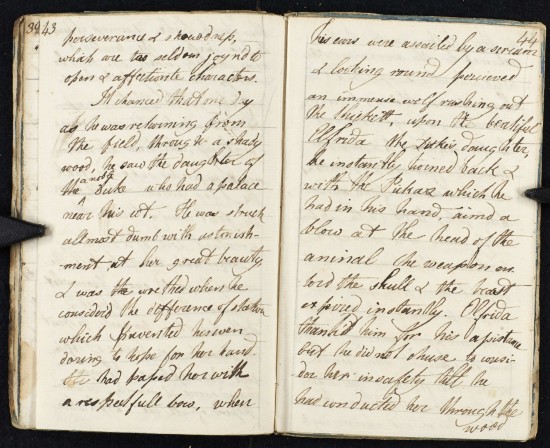 39 43
perseverance & shrewdness,
which are too seldom joynd to
open & affectionte characters.
It chanced that one day
as he was returning from
the field, through a shady
wood, he saw the daughter of
the a Duke who had a palace
near his cot. He was struck
allmost dumb with astonish-
-ment at her great beauty
& was the wretched when he
considerd the difference of station
which prevented his ven
dering to hope for her hand.
He had passed her with
a respectfull bow, when
44
his ears were assailed by a scream
& looking round perceived
an immense wolf rushing out
the thickett, upon the beatiful
Elfrida the Duke's daughter,
he instantly turned back &
with the Pickax which he
had in his hand, aimd a
blow at the head of the
animal the weapon en
terd the skull & the beast
expired instantly. Elfrida
thankd him for his assistance
but he did not chuse to consi-
der her in safety till he
had conducted her through the
wood